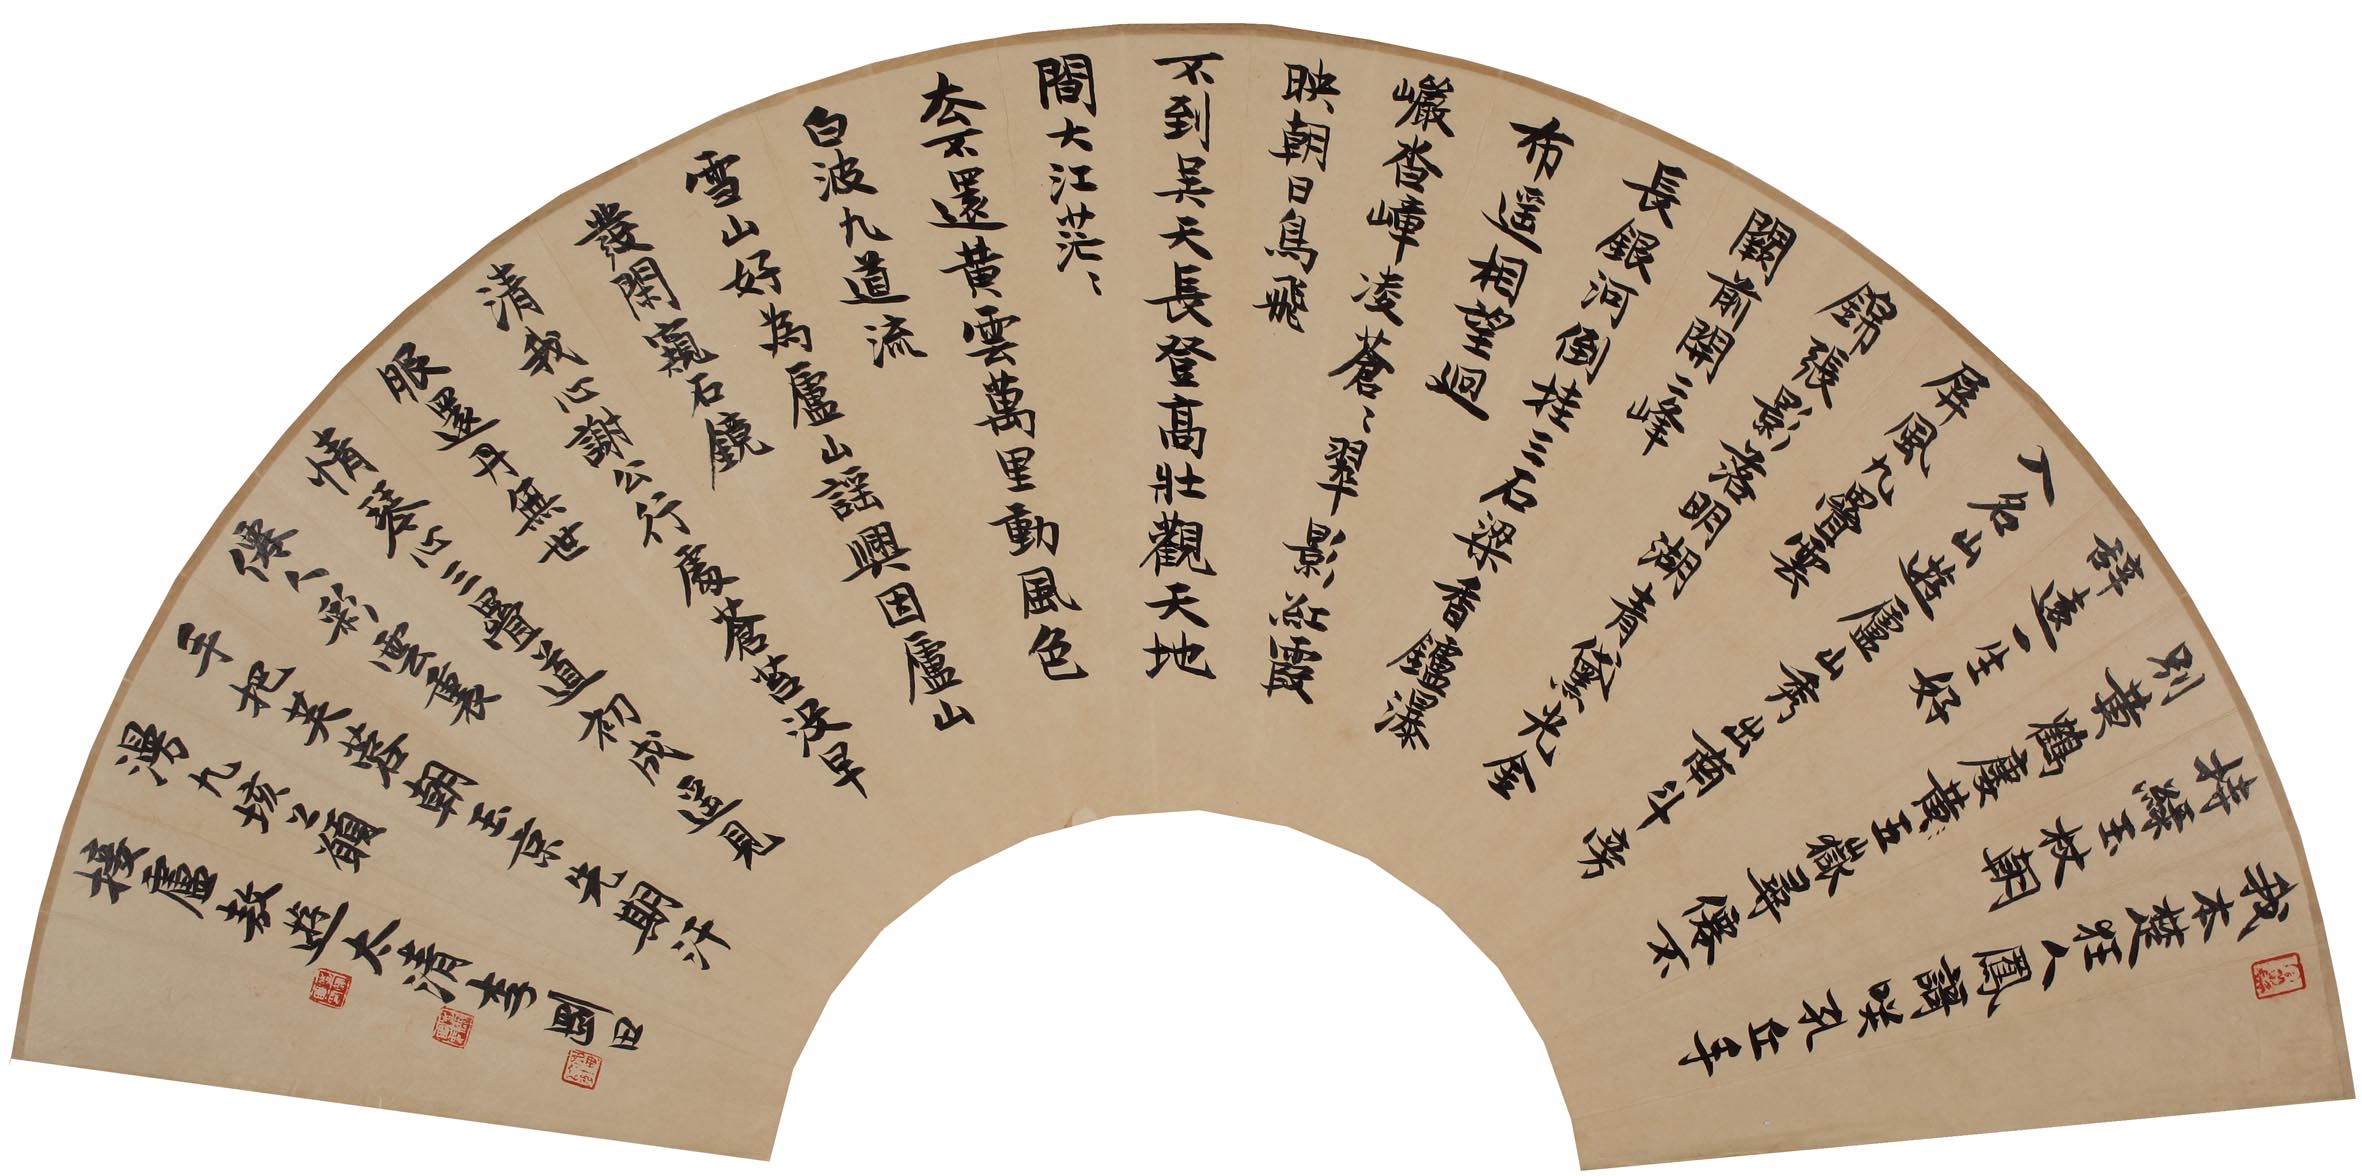 我本楚狂人鳳謌咲孔丘手
持綠玉杖朝
別黃鶴慶黃五嶽尋僊不
辭遠一生好
入名山遊廬山秀出南斗旁
屏風九疊雲
錦張影落明湖青黛光金
闕前開二峰
長銀河倒挂三石梁香鑪瀑
布遥相望迴
巖沓嶂凌蒼〻翠影紅霞
映朝日鳥飛
不到吳天長登高壯觀天地
間大江茫〻
去不還黃雲萬里動風色
白波九道流
雪山好為廬山謡興因廬山
發閑窺石鏡
清我心謝公行處蒼苔没早
服還丹無世
情琴心三疊道初成遥見
僊人彩雲裏
手把芙蓉朝玉京先期汗
漫九垓上願
接盧敖遊太清 李剛田